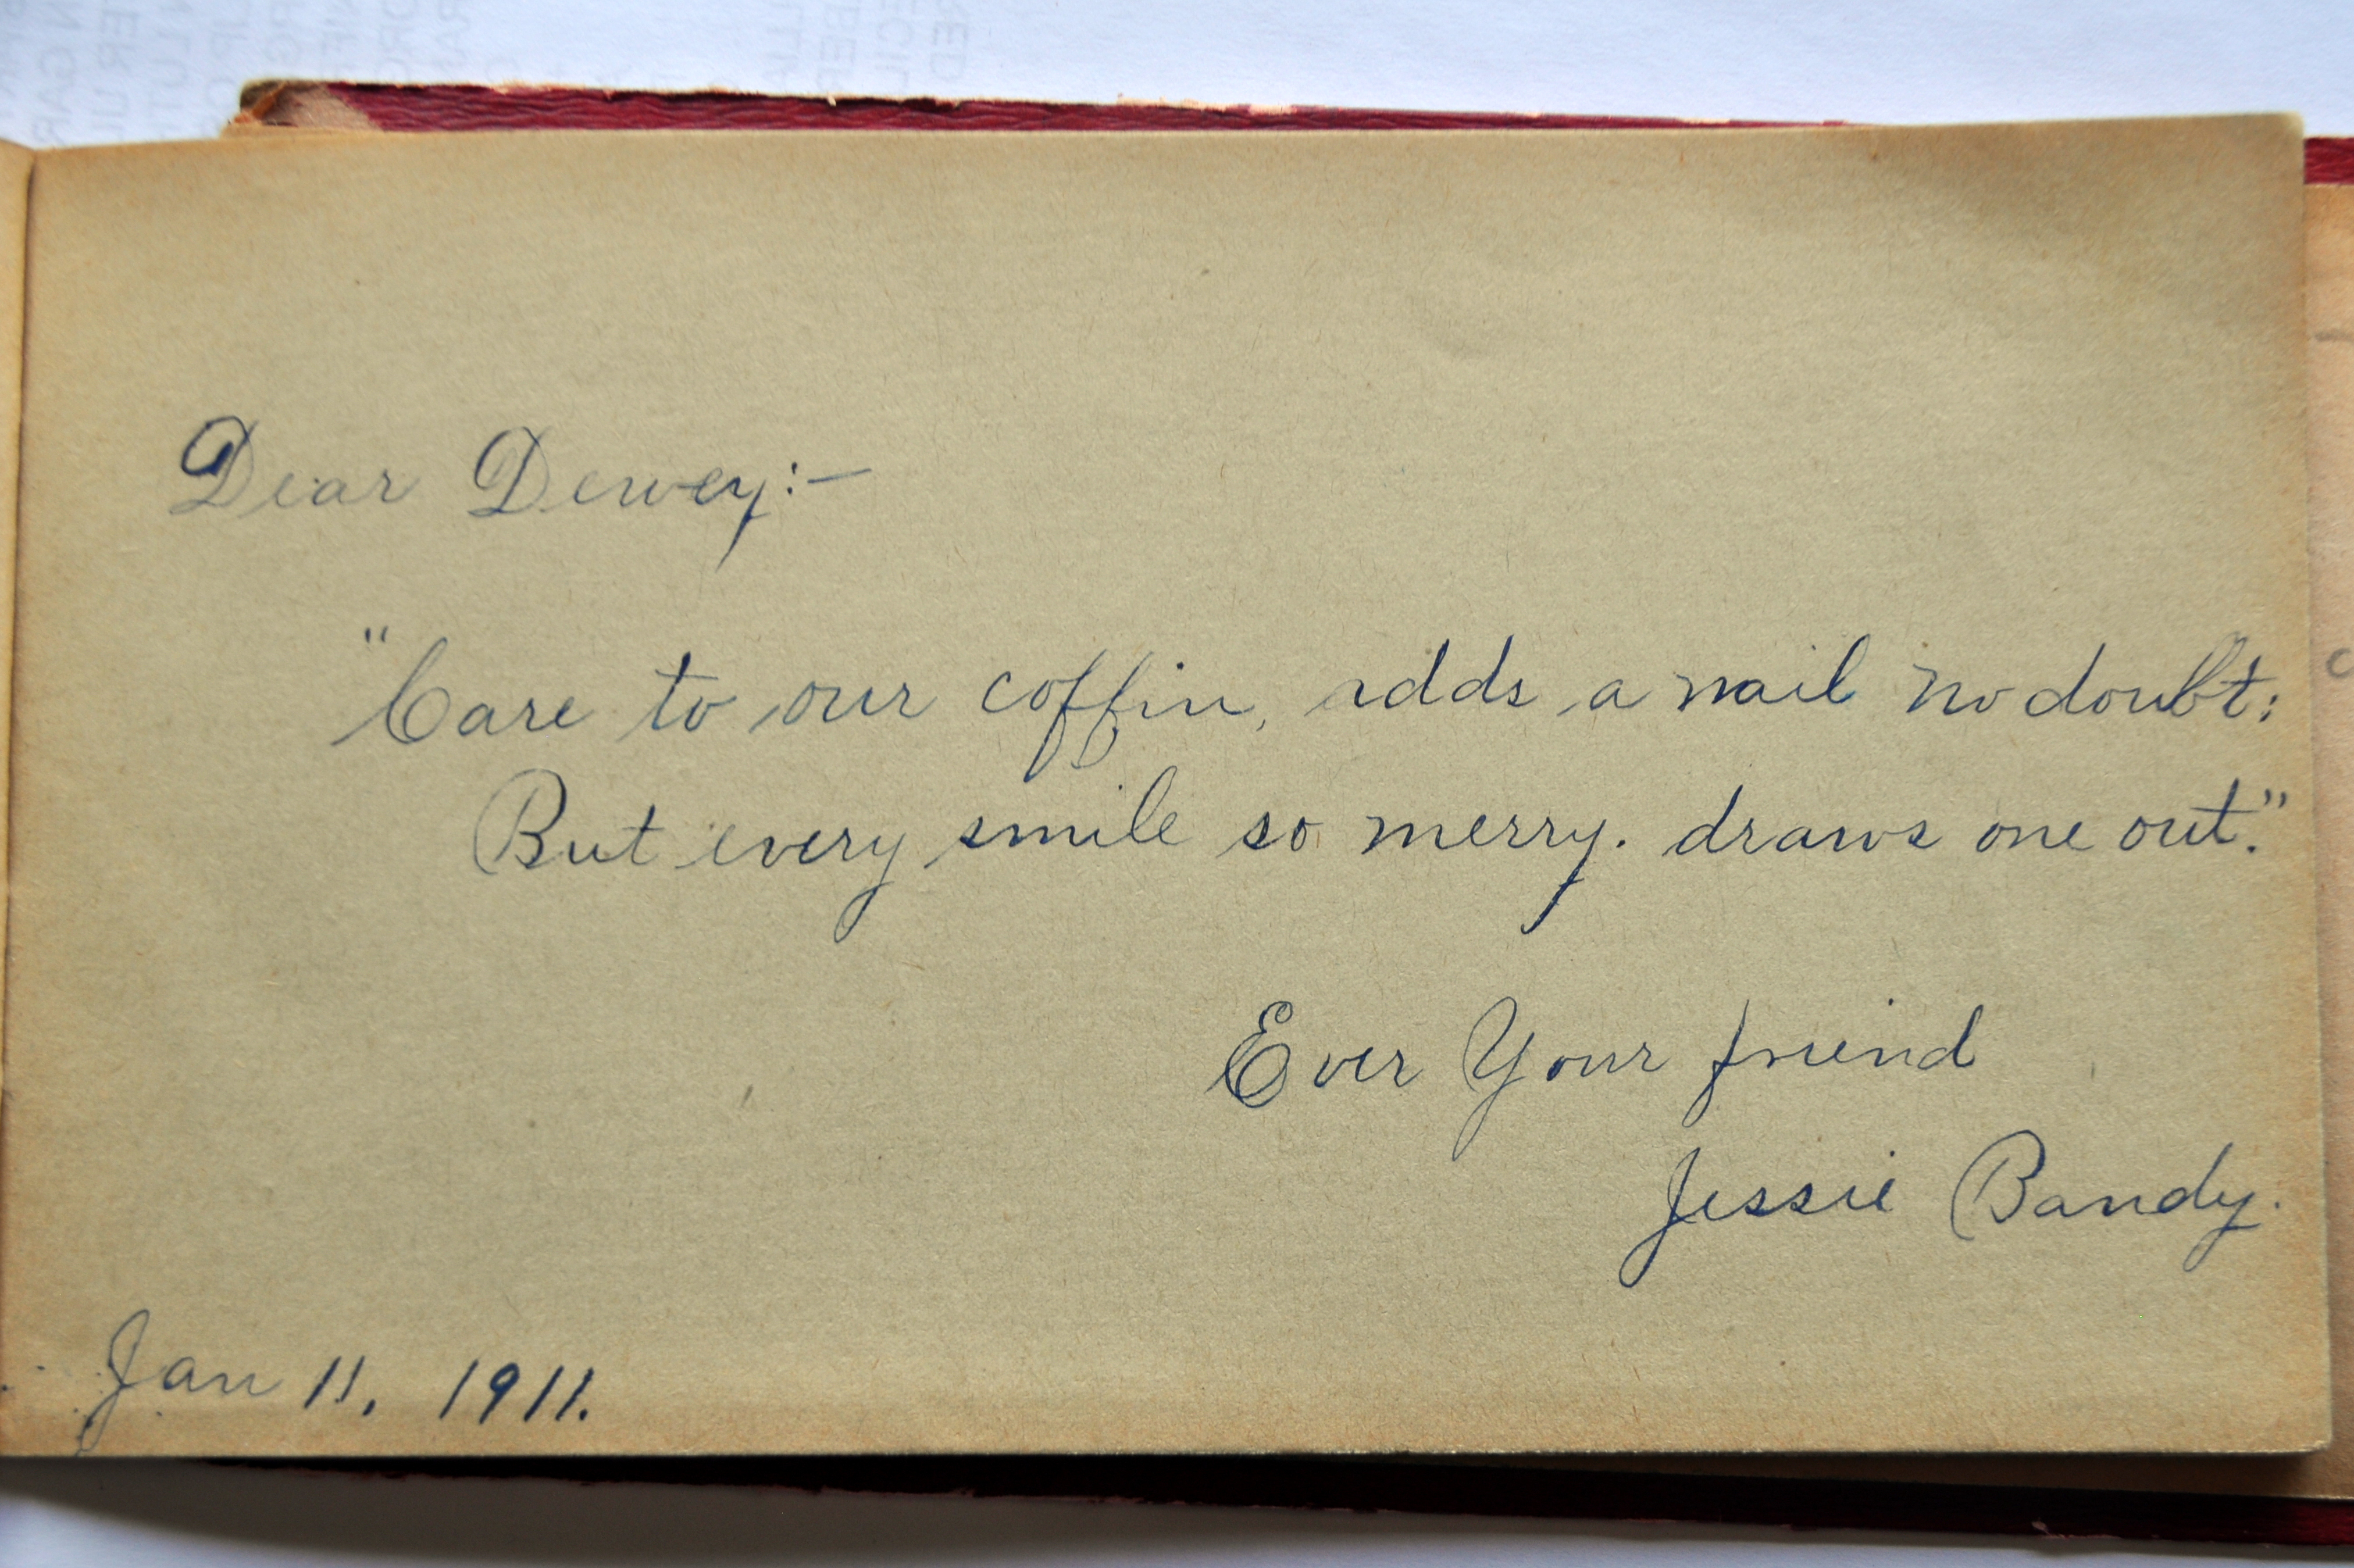 Dear Dewey:—
"Care to our coffin, adds a nail no doubt:
But every smile so merry. draws one out."
Ever Your friend
Jessie Bandy.
Jan 11, 1911.